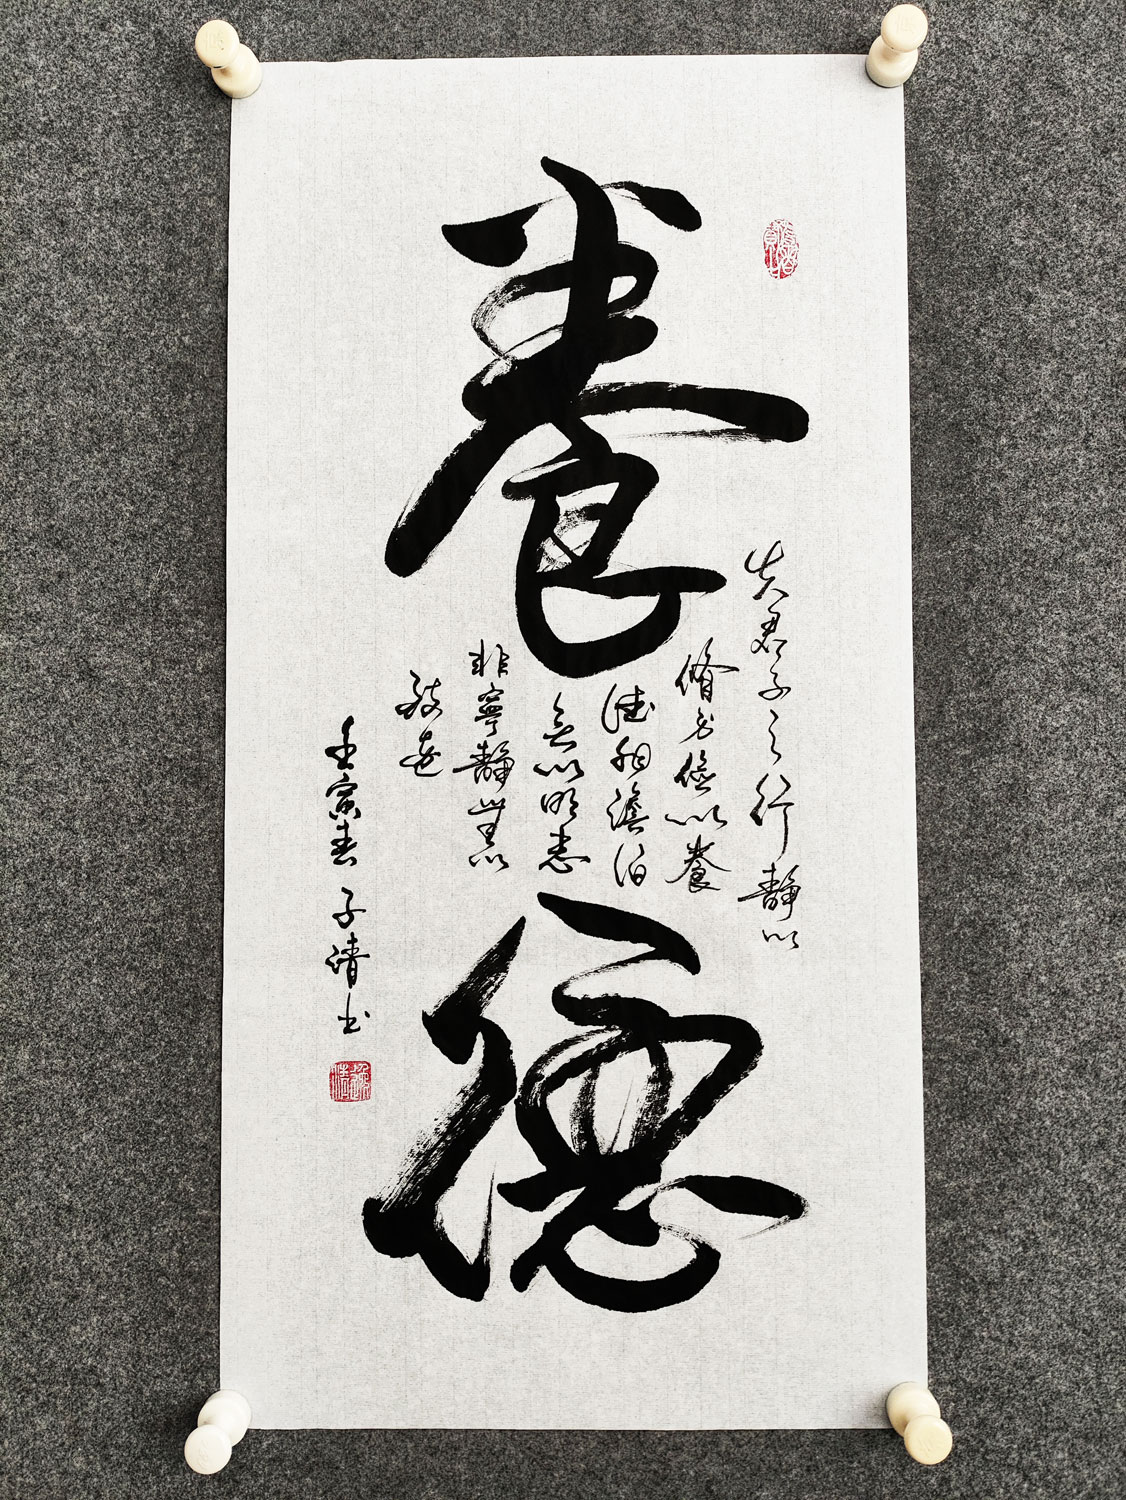 養
德
夫君子之行靜以
脩身儉以養
德非澹泊
無以明志
非寧靜無以
致遠
壬寅春 子清书